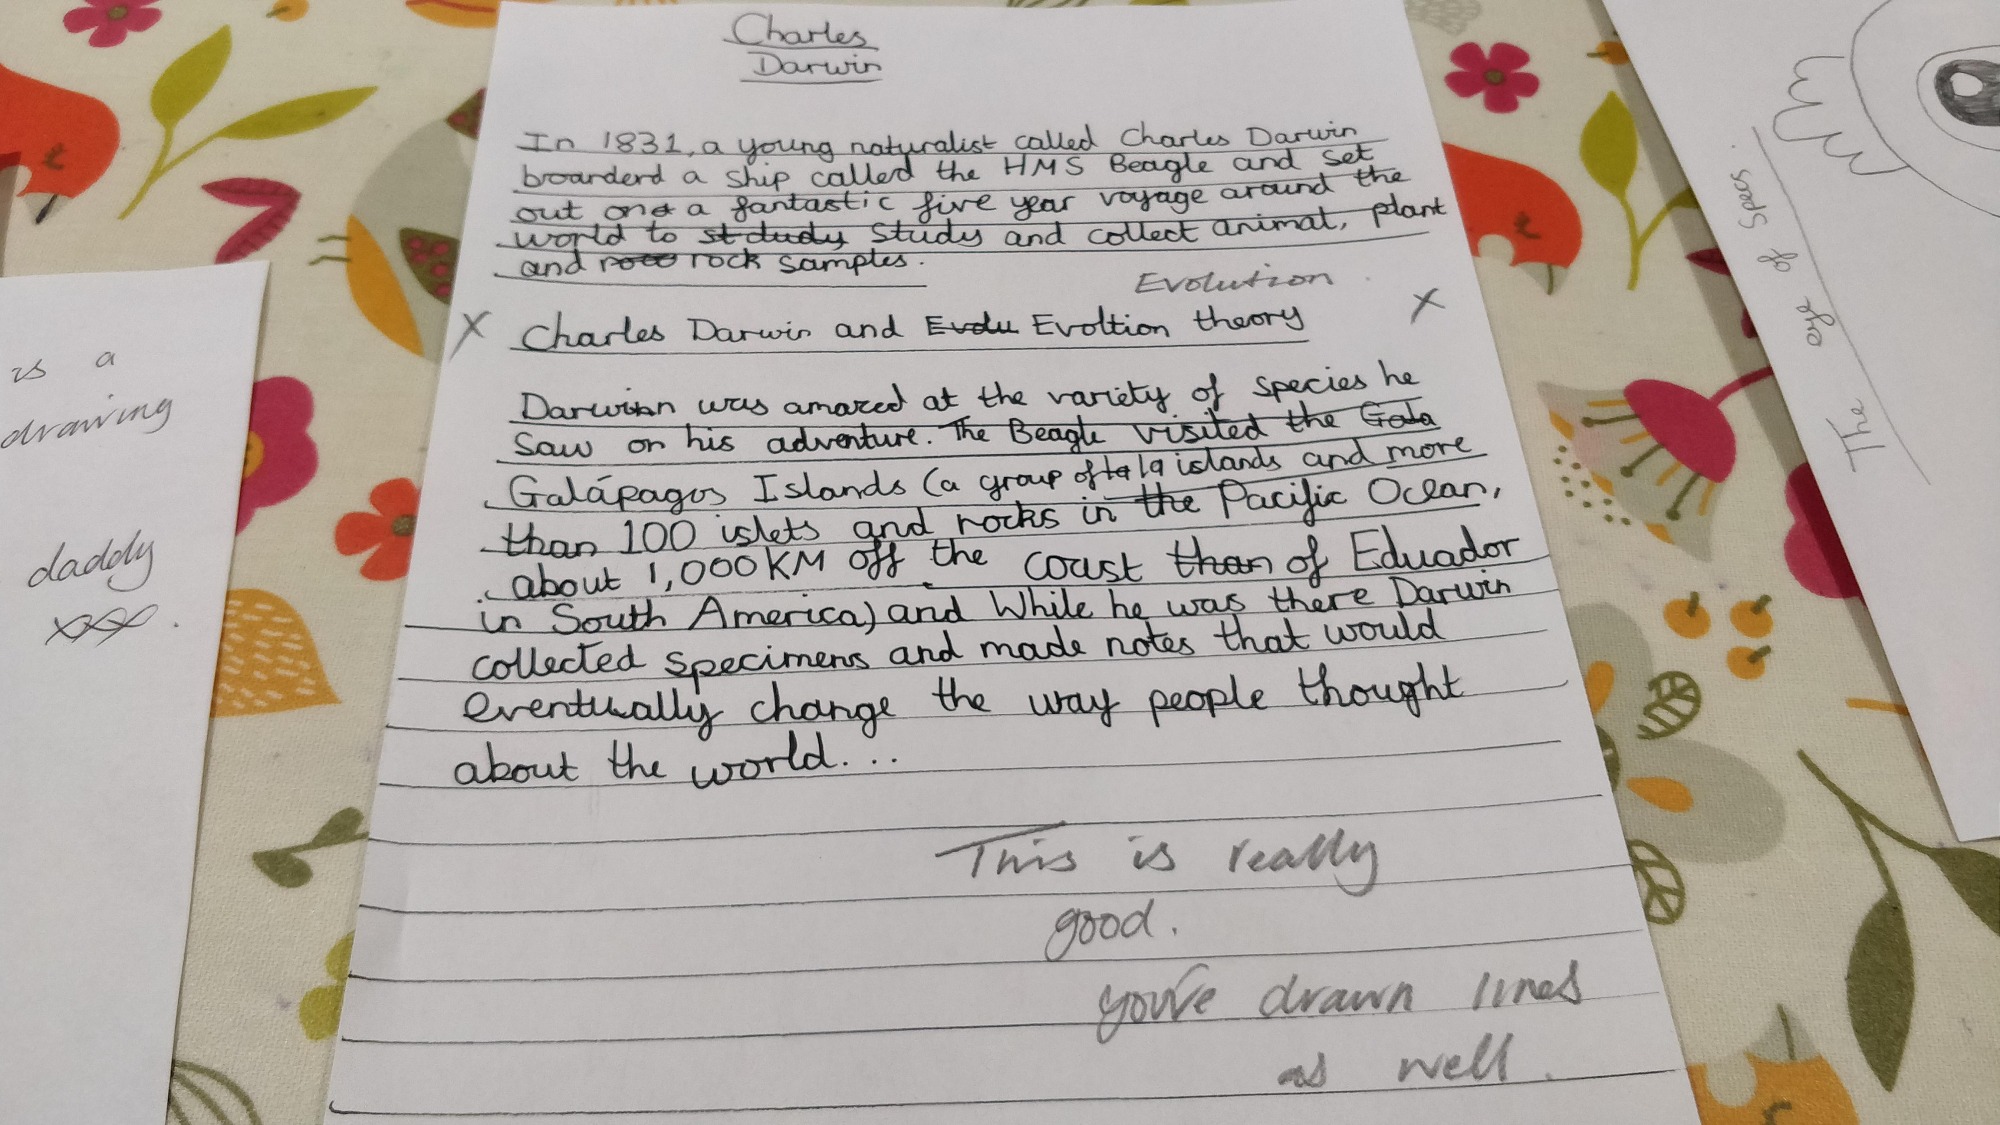 Charles
Darwin
In 1831, a young naturalist called Charles Darwin
broarderd a ship called the HMS Beagle and set
out on a fantastic five year voyage around the
world to st dudy study and collect animal, plant
and rock samples.
Evolution
X Charles Darwin and Evolu Evoltion theory X
Darwinn was amazed at the variety of species he
saw on his adventure. The Beagle visited the Gala
Galápagos Islands (a group of 19 islands and more
than 100 islets and rocks in the Pacific Ocean,
about 1,000KM off the coast than of Eduador
in South America) and While he was there Darwin
collected specimens and made notes that would
eventually change the way people thought
about the world...
This is really
good.
you've drawn lines
as well.
is a
drawing
daddy
xxx.
The eye of Specs.